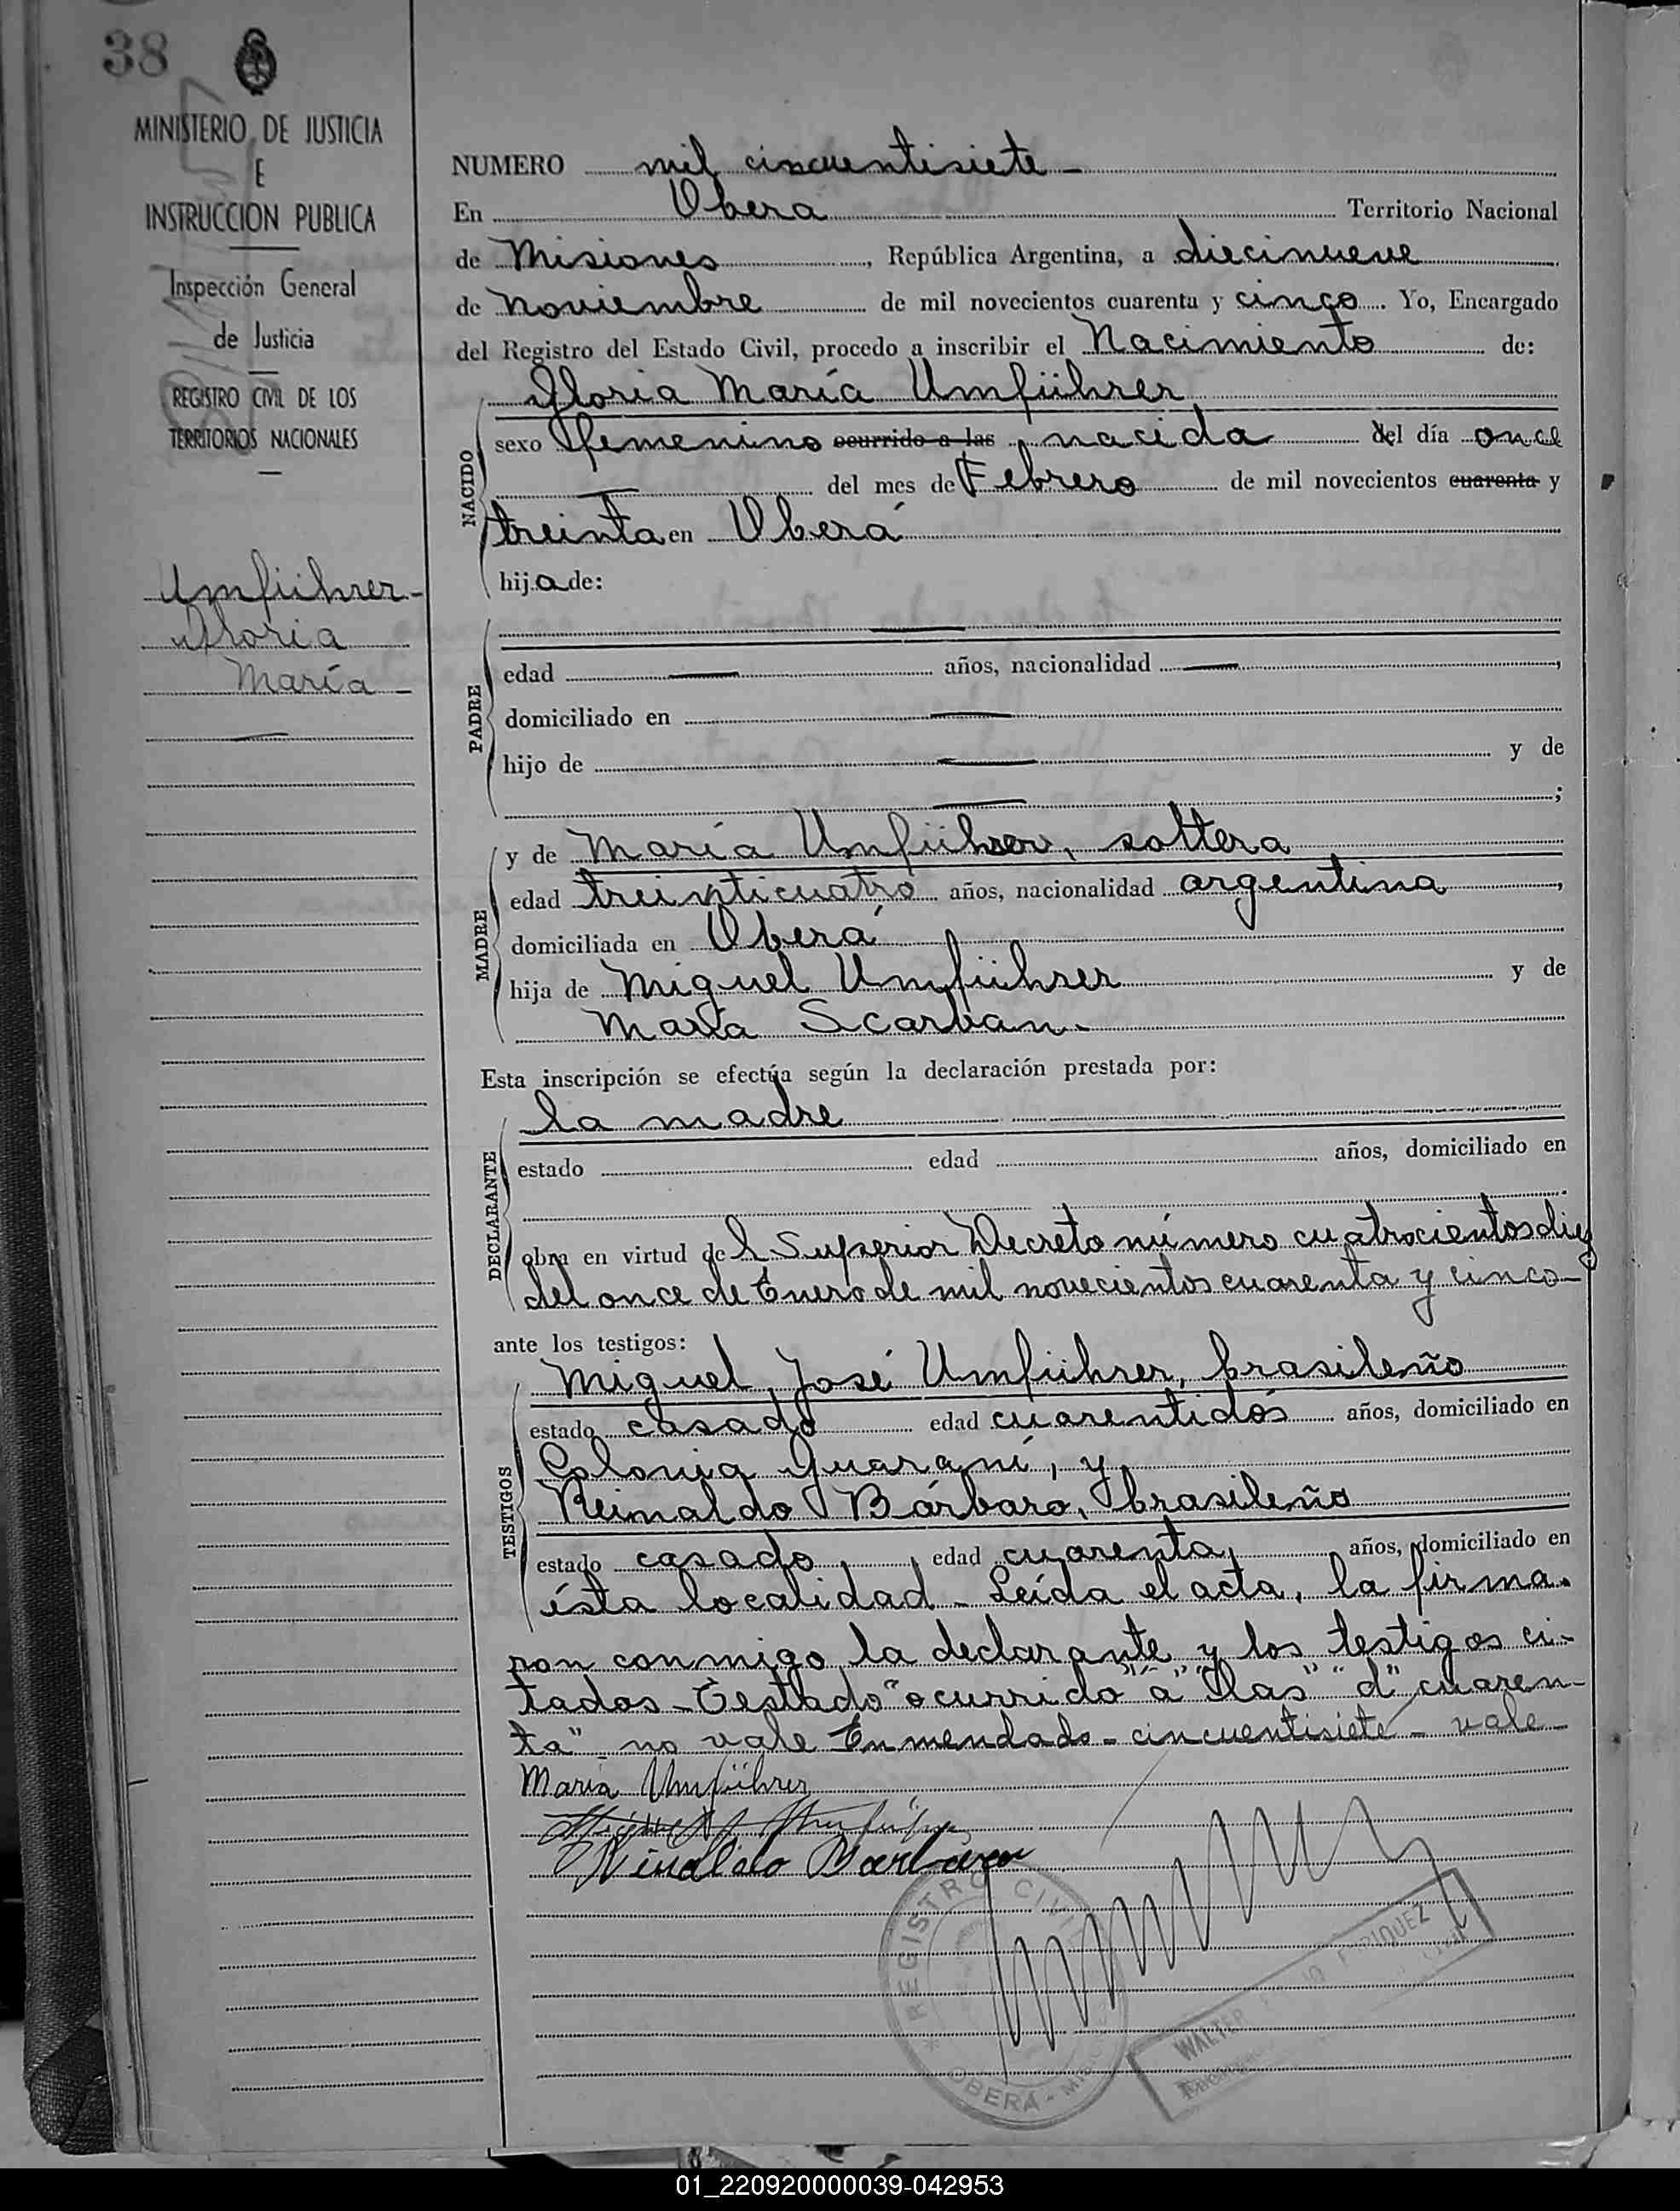 38
MINISTERIO DE JUSTICIA
E
INSTRUCCION PUBLICA
Inspección General
de Justicia
REGISTRO CIVIL DE LOS
TERRITORIOS NACIONALES
Umführer-
Gloria
María -
NUMERO mil cincuentisiete -
En Obera Territorio Nacional
de Misiones, República Argentina, a diecinueve
de noviembre de mil novecientos cuarenta y cinco. Yo, Encargado
del Registro del Estado Civil, procedo a inscribir el Nacimiento de:
NACIDO
Gloria María Umführer
sexo femenino ocurrido a las, nacida del día once
— del mes de Febrero de mil novecientos cuarenta y
treinta en Oberá
hija de:
PADRE
—
edad — años, nacionalidad —,
domiciliado en —
hijo de — y de
— ;
MADRE
y de María Umführer, soltera
edad treinticuatro años, nacionalidad argentina,
domiciliada en Oberá
hija de Miguel Umführer y de
María Scarvan.
Esta inscripción se efectúa según la declaración prestada por:
DECLARANTE
la madre
estado edad años, domiciliado en
obra en virtud del Superior Decreto número cuatrocientos diez
del once de Enero de mil novecientos cuarenta y cinco-
ante los testigos:
TESTIGOS
Miguel José Umführer, brasileño
estado casado edad cuarentidós años, domiciliado en
Colonia Guaraní, y
Reinaldo Bárbaro, brasileño
estado casado, edad cuarenta, años, domiciliado en
ésta localidad - Leída el acta, la firma-
ron conmigo la declarante y los testigos ci-
tados - Testado "ocurrido" "a" "las" "d" "cuaren-
ta" - no vale Enmendado - cincuentisiete - vale
María Umführer
Reinaldo Barbaro
REGISTRO CIVIL
OBERA -
WALTER ENRIQUEZ
01_220920000039-042953